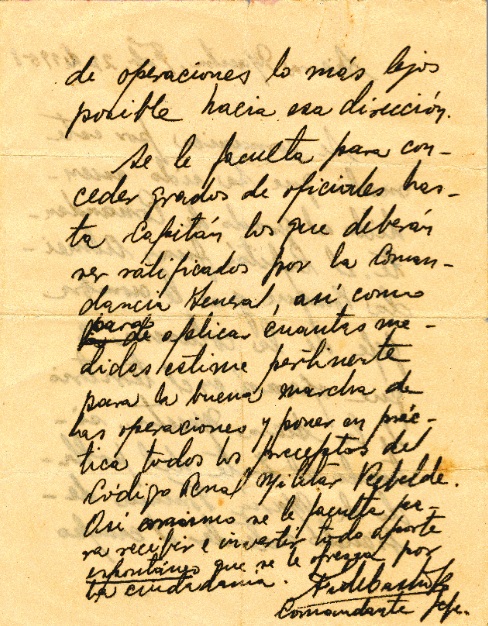 de operaciones lo más lejos
posible hacia esa dirección.
Se le faculta para con-
ceder grados de oficiales has-
ta Capitán los que deberán
ser ratificados por la Coman-
dancia General, así como
para de aplicar cuantas me-
didas estime pertinente
para la buena marcha de
las operaciones y poner en prác-
tica todos los preceptos del
Código Penal Militar Rebelde.
Así mismo se le faculta pa-
ra recibir e invertir todo aporte
espontáneo que se le ofrezca por
la ciudadanía.
Fidel Castro R
Comandante Jefe.